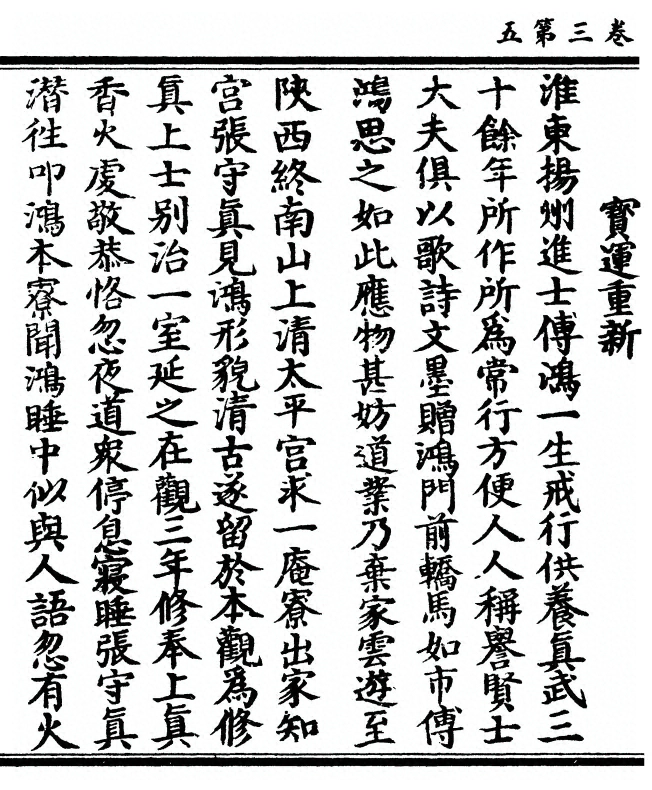 卷三第五
寳運重新
淮東揚州進士傅鴻一生戒行供養眞武三
十餘年所作所爲常行方便人人稱譽賢士
大夫俱以歌詩文墨贈鴻門前轎馬如市傅
鴻思之如此應物甚妨道業乃棄家雲遊至
陝西終南山上清太平宫求一庵寮出家知
宫張守眞見鴻形貌清古遂留於本觀爲修
眞上士别治一室延之在觀三年修奉上眞
香火虔敬恭恪忽夜道衆停息寢睡張守眞
潛往叩鴻本寮聞鴻睡中似與人語忽有火